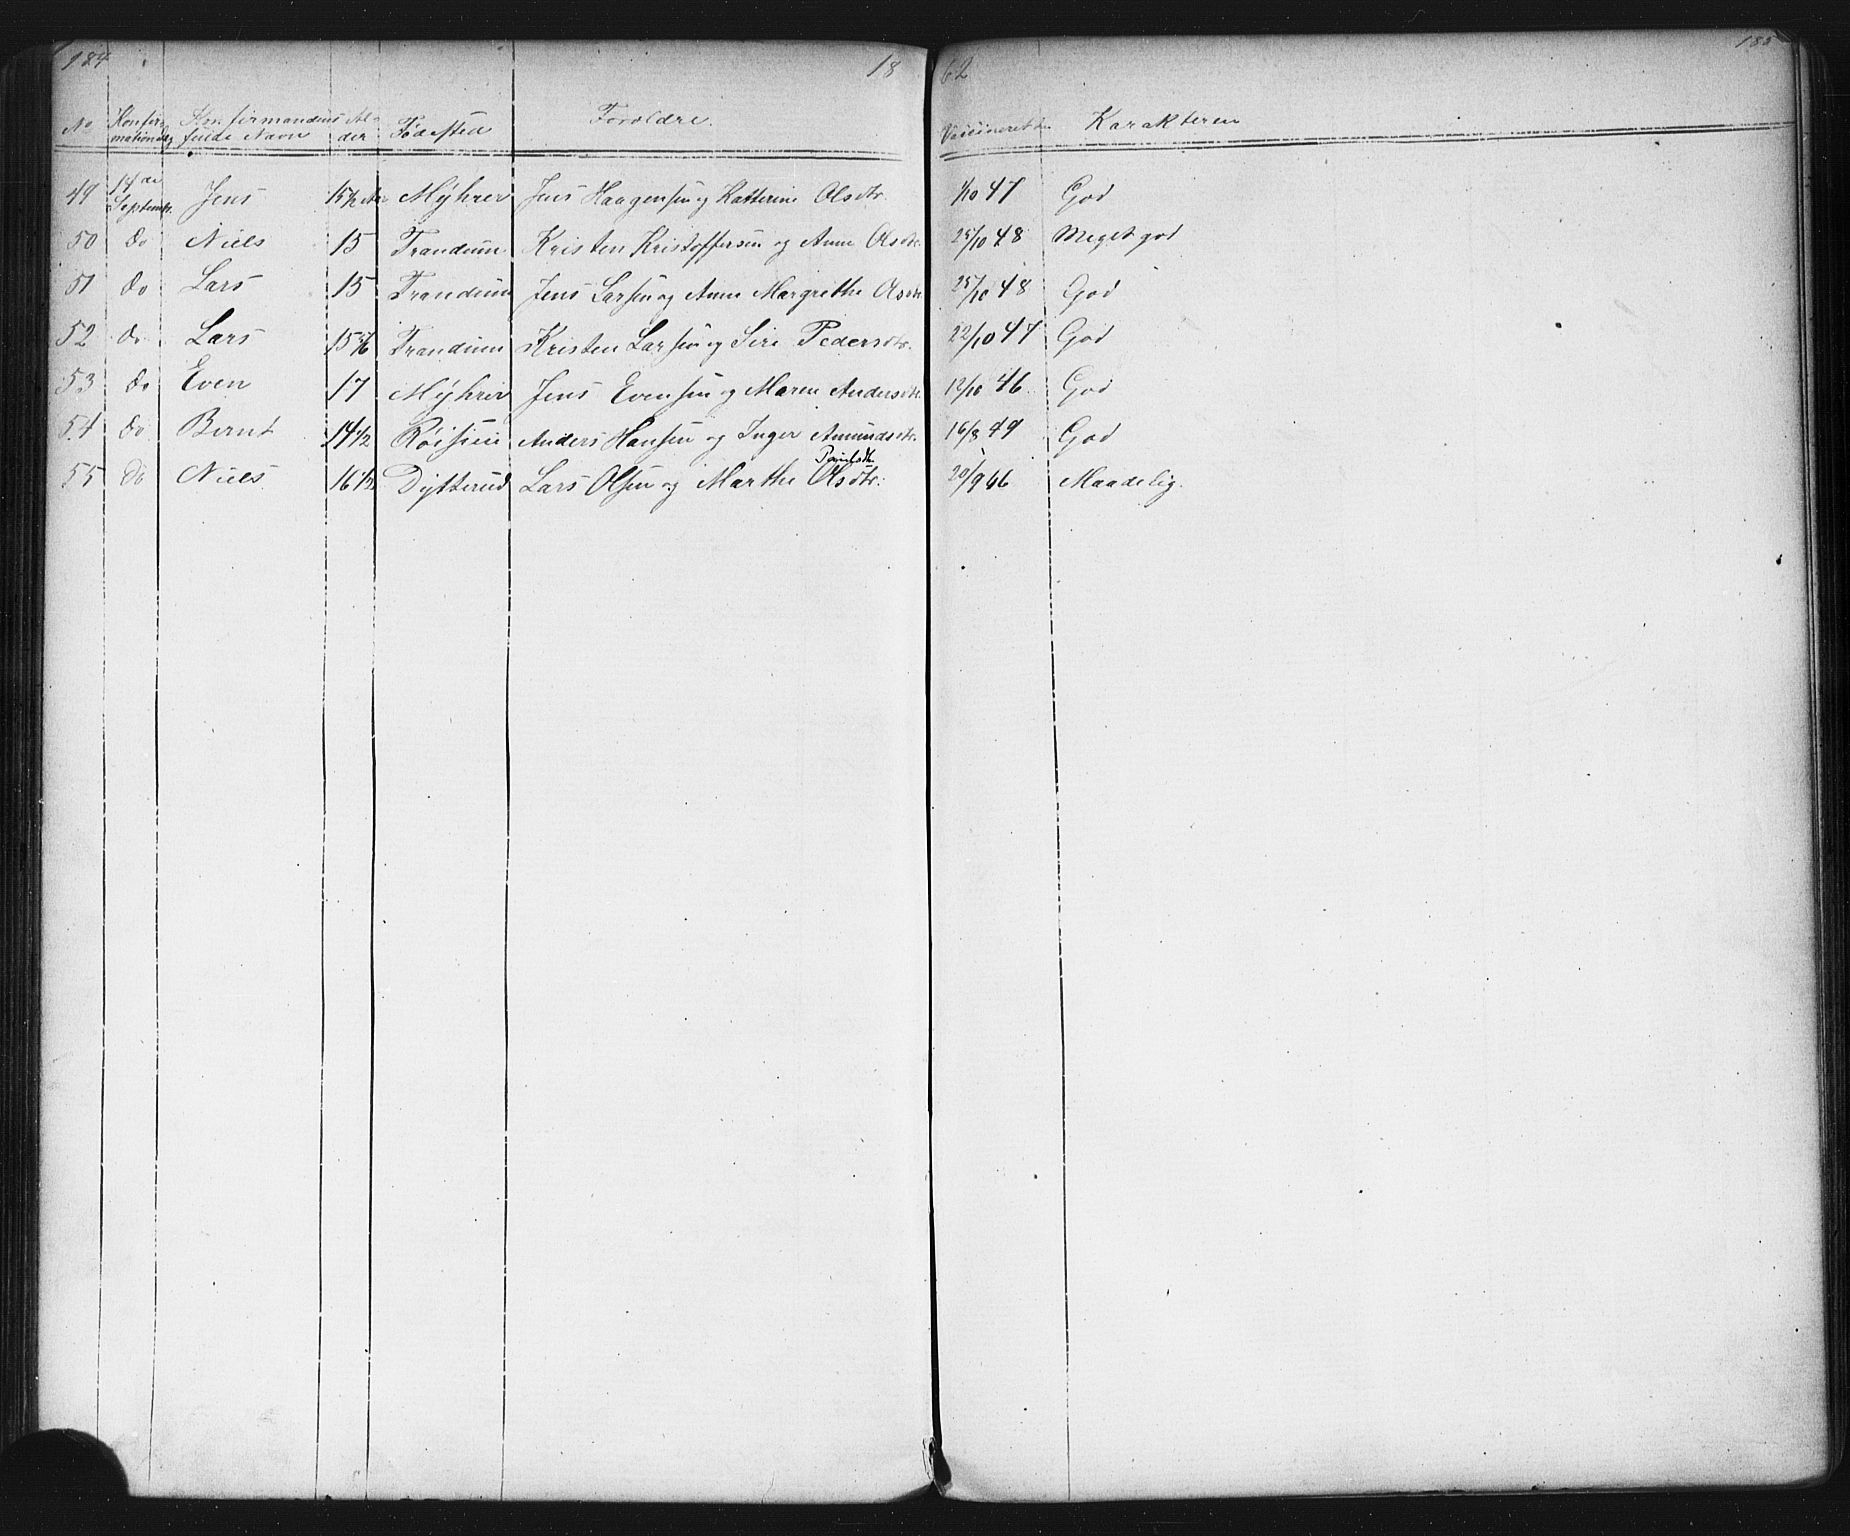 184 18 62 185
No Konfirmationsdag Konfirmandens fulde Navn Alder Födested Forældre. Vaccineret Karakteren
49 14de Septembr. Jens 15 1/2 Aar Mÿhrer Jens Haagensen og Katterine Olsdtr. 1/10 47 God
50 do Niels 15 Trandum Kristen Kristoffersen og Anne Olsdtr. 25/10 48 Meget god
51 do Lars 15 Trandum Jens Larsen og Anne Margrethe Olsdtr. 25/10 48 God
52 do Lars 15 Trandum Kristen Larsen og Siri Pedersdtr. 22/10 47 God
53 do Even 17 Mÿhrer Jens Evensen og Maren Andersdtr. 12/10 46 God
54 do Bernt 14 1/2 Röisen Anders Hansen og Inger Amundsdtr. 16/8 49 God
Poulsdtr.
55 do Niels 16 1/2 Dÿtterud Lars Olsen og Marthe Olsdtr. 20/9 46 Maadelig.